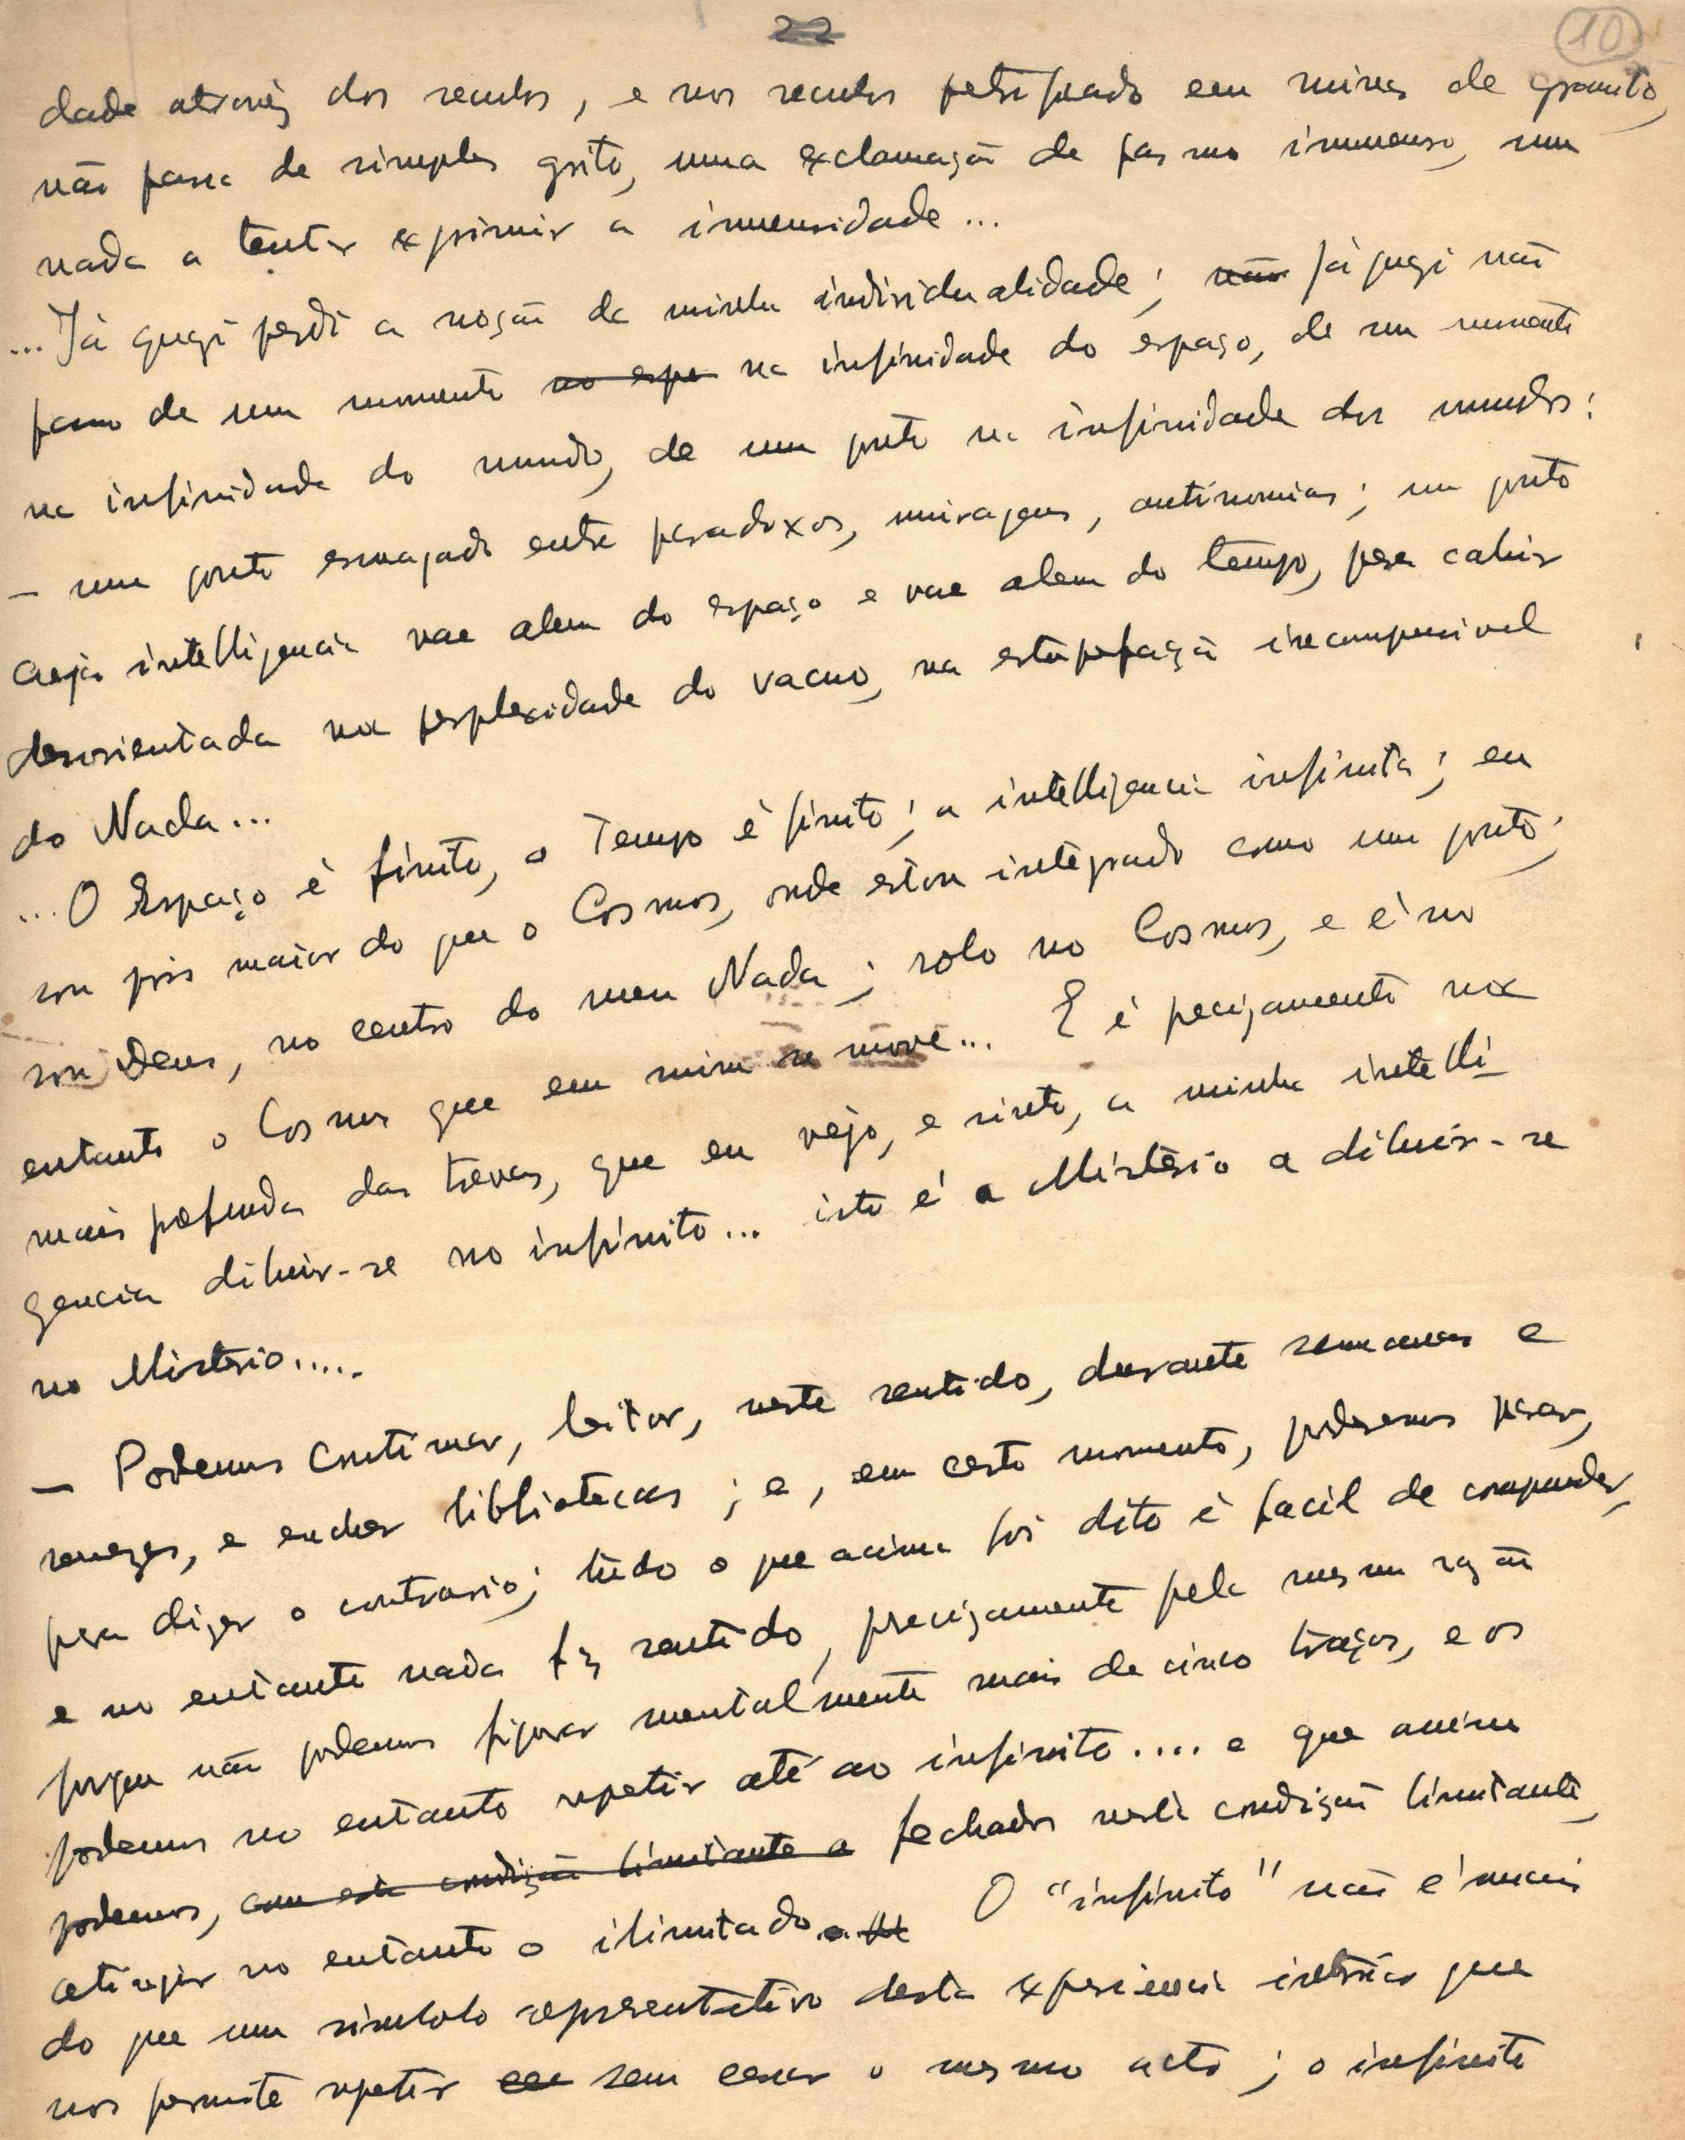 22
10
dade atravéz dos seculos, e nos seculos petrificado em ruinas de granito,
não passa de simples grito, uma exclamação de pasmo immenso, um
nada a tentar exprimir a immensidade...
...Já quazi perdi a noção da minha individualidade; não já quazi não
passo de um momento no espa na infinidade do espaço, de um momento
na infinidade do mundo, de um ponto na infinidade dos mundos:
— um ponto esmagado entre paradoxos, miragens, antinomias; um ponto
cuja intelligencia vae alem do espaço e vae alem do tempo, para cahir
desorientada na perplexidade do vacuo, na estupefação
do Nada...
...O Espaço é finito, o Tempo é finito; a intelligencia infinita; eu
sou pois maior do que o Cosmos, onde estou integrado como um ponto;
sou Deus, no centro do meu Nada; rolo no Cosmos, e é no
entanto o Cosmos que em mim se move... E é precizamente na
mais profunda das trevas, que eu vejo, e sinto, a minha intelli-
gencia diluir-se no infinito... isto é o Mistério a diluir-se
no Mistério.....
— Podemos continuar, leitor, neste sentido, durante semanas e
mezes, e encher bibliotecas; e, em certo momento, podemos parar,
para dizer o contrario; tudo o que acima foi dito é facil de compreender,
e no entanto nada faz sentido, precizamente pela mesma razão
porque não podemos figurar mentalmente mais de cinco traços, e os
podemos no entanto repetir até ao infinito.... e que assim
podemos, com esta condição limitante a fechados nesta condição limitante,
atingir no entanto o ilimitado. O "infinito" não é mais
do que um simbolo representativo desta experiencia que
nos permite repetir sem cessar o mesmo acto; o infinito